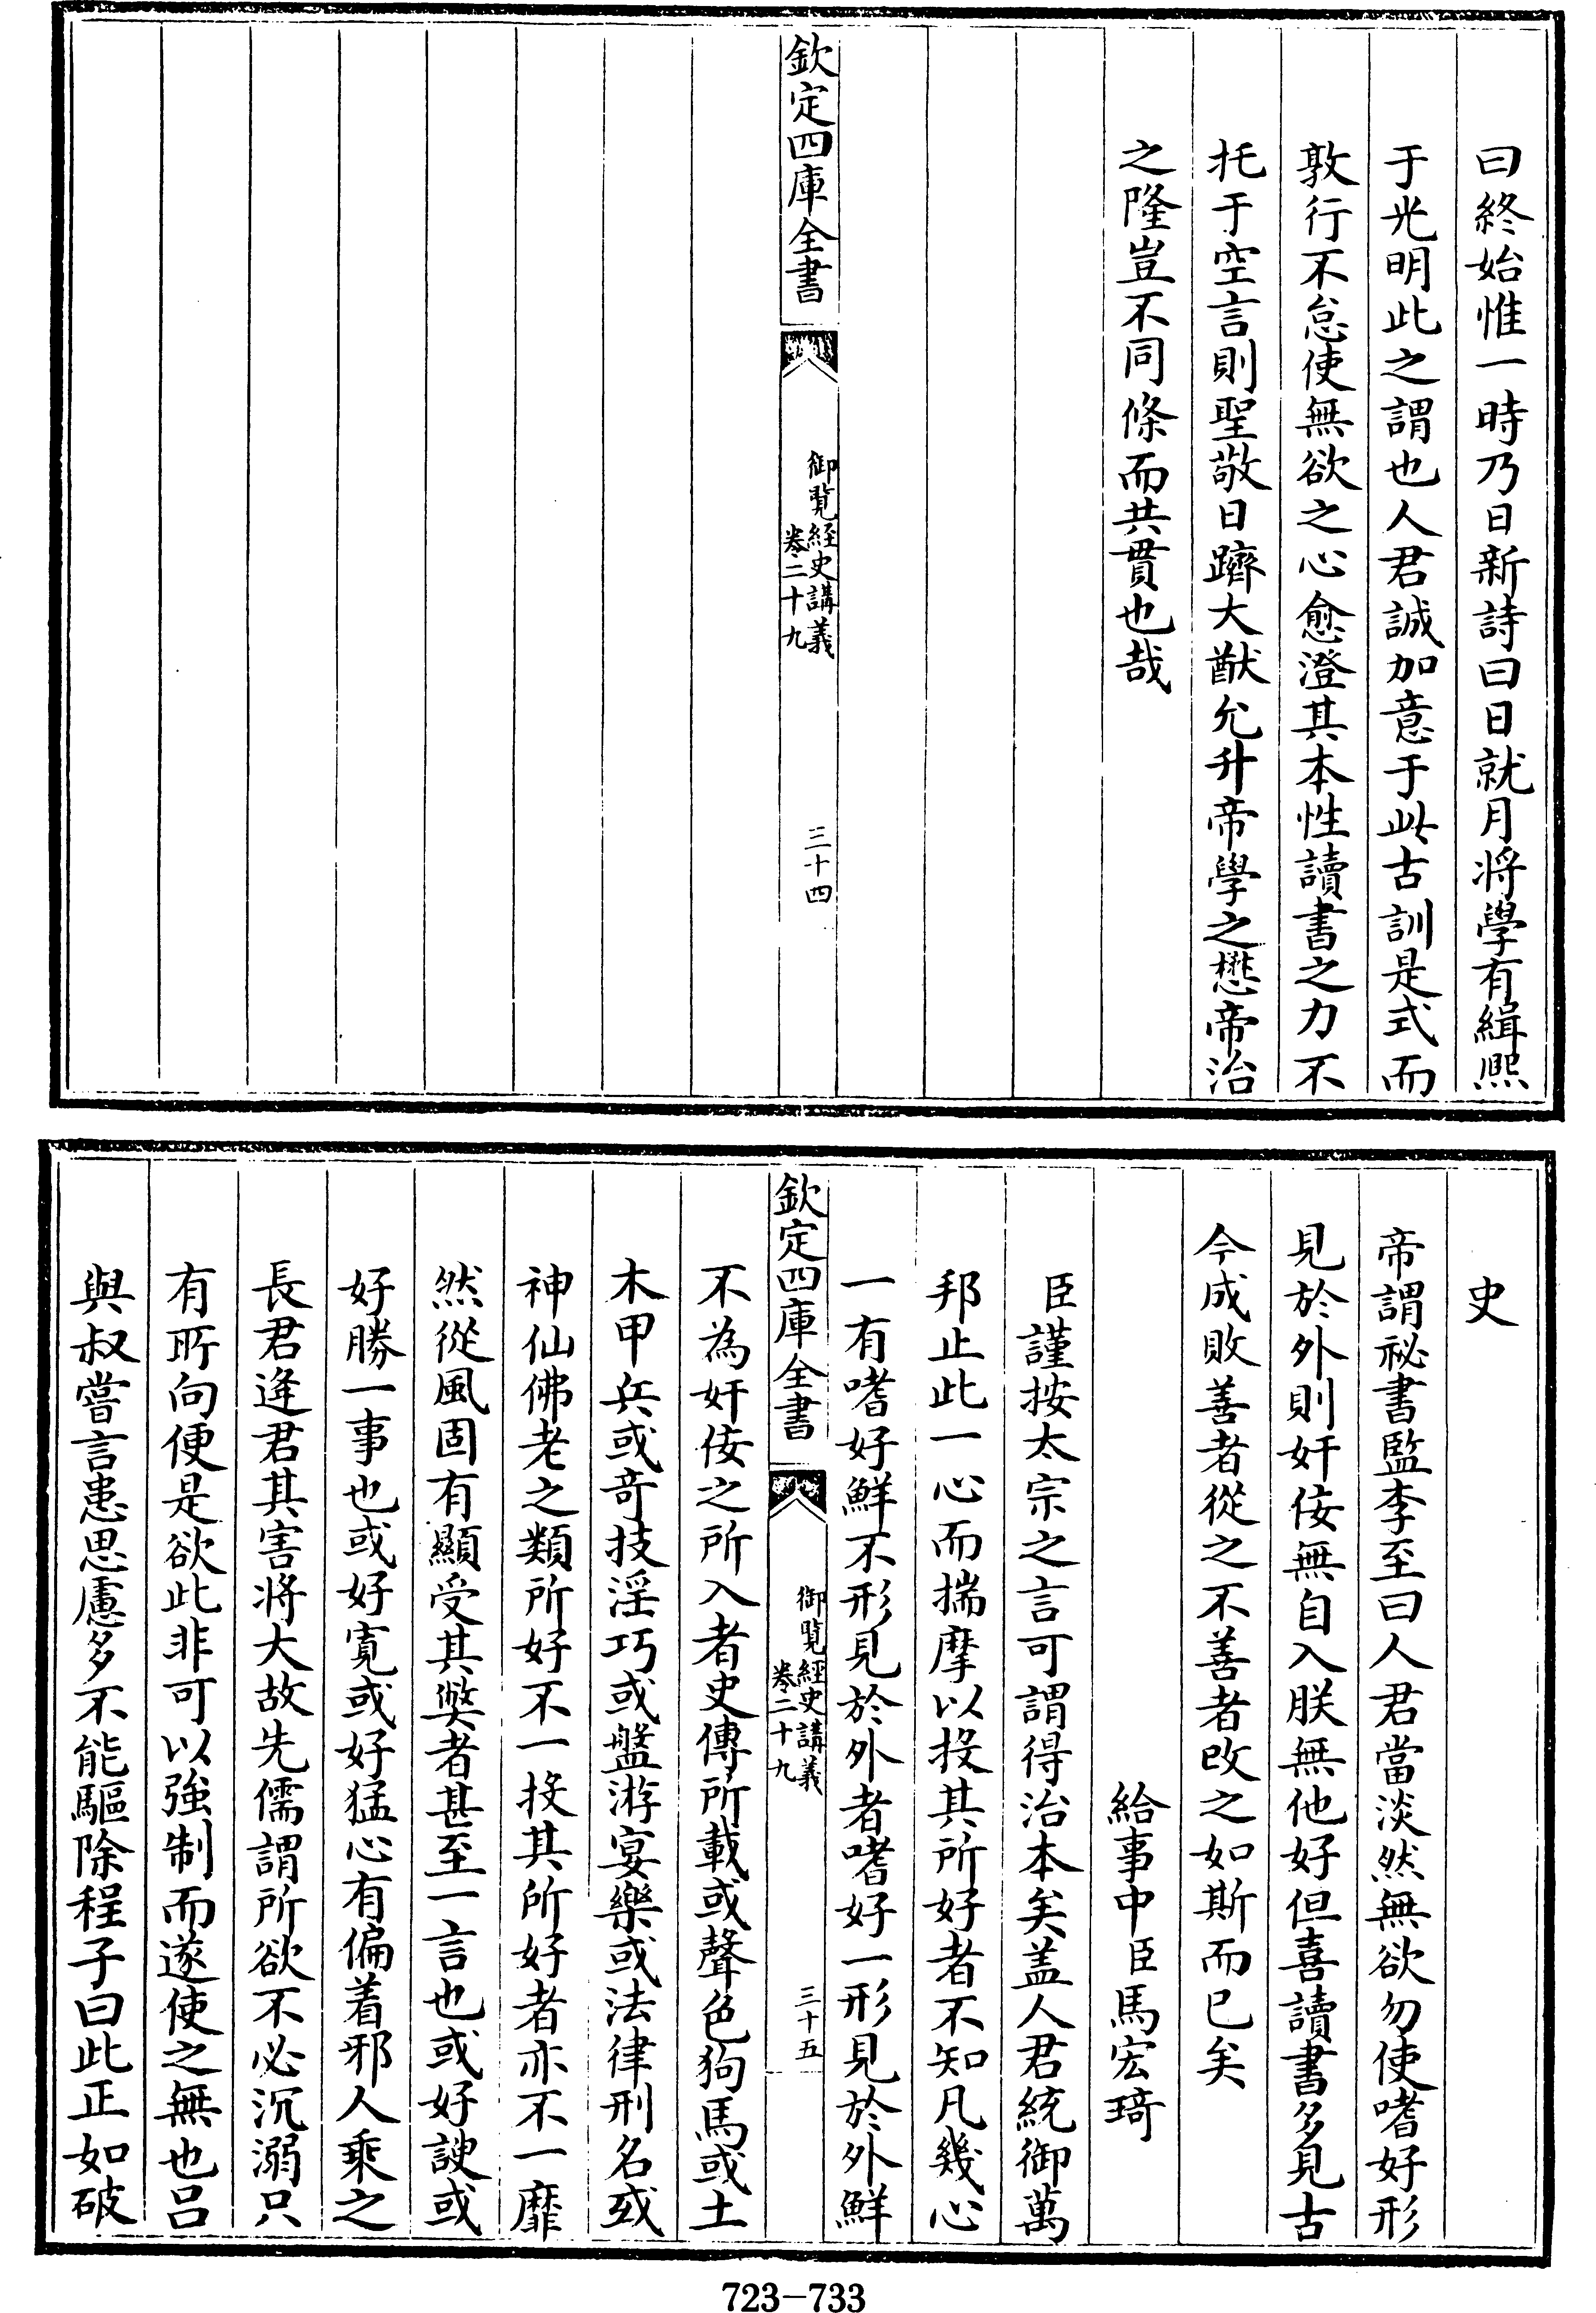 曰終始惟一時乃日新詩曰日就月将學有緝熈
于光明此之謂也人君誠加意于此古訓是式而
敦行不怠使無欲之心愈澄其本性讀書之力不
托于空言則聖敬日躋大猷允升帝學之懋帝治
之隆豈不同條而共貫也哉
欽定四庫全書
御覽經史講義
卷二十九
三十四
史
帝謂祕書監李至曰人君當淡然無欲勿使嗜好形
見於外則奸佞無自入朕無他好但喜讀書多見古
今成敗善者從之不善者改之如斯而已矣
給事中臣馬宏琦
臣謹按太宗之言可謂得治本矣盖人君統御萬
邦止此一心而揣摩以投其所好者不知凡幾心
一有嗜好鮮不形見於外者嗜好一形見於外鮮
欽定四庫全書
御覽經史講義
卷二十九
三十五
不為奸佞之所入者史傳所載或聲色狗馬或土
木甲兵或竒技淫巧或盤游宴樂或法律刑名或
神仙佛老之類所好不一投其所好者亦不一靡
然從風固有顯受其弊者甚至一言也或好諛或
好勝一事也或好寛或好猛心有偏着邪人乘之
長君逢君其害将大故先儒謂所欲不必沉溺只
有所向便是欲此非可以強制而遂使之無也吕
與叔嘗言患思慮多不能驅除程子曰此正如破
723-733